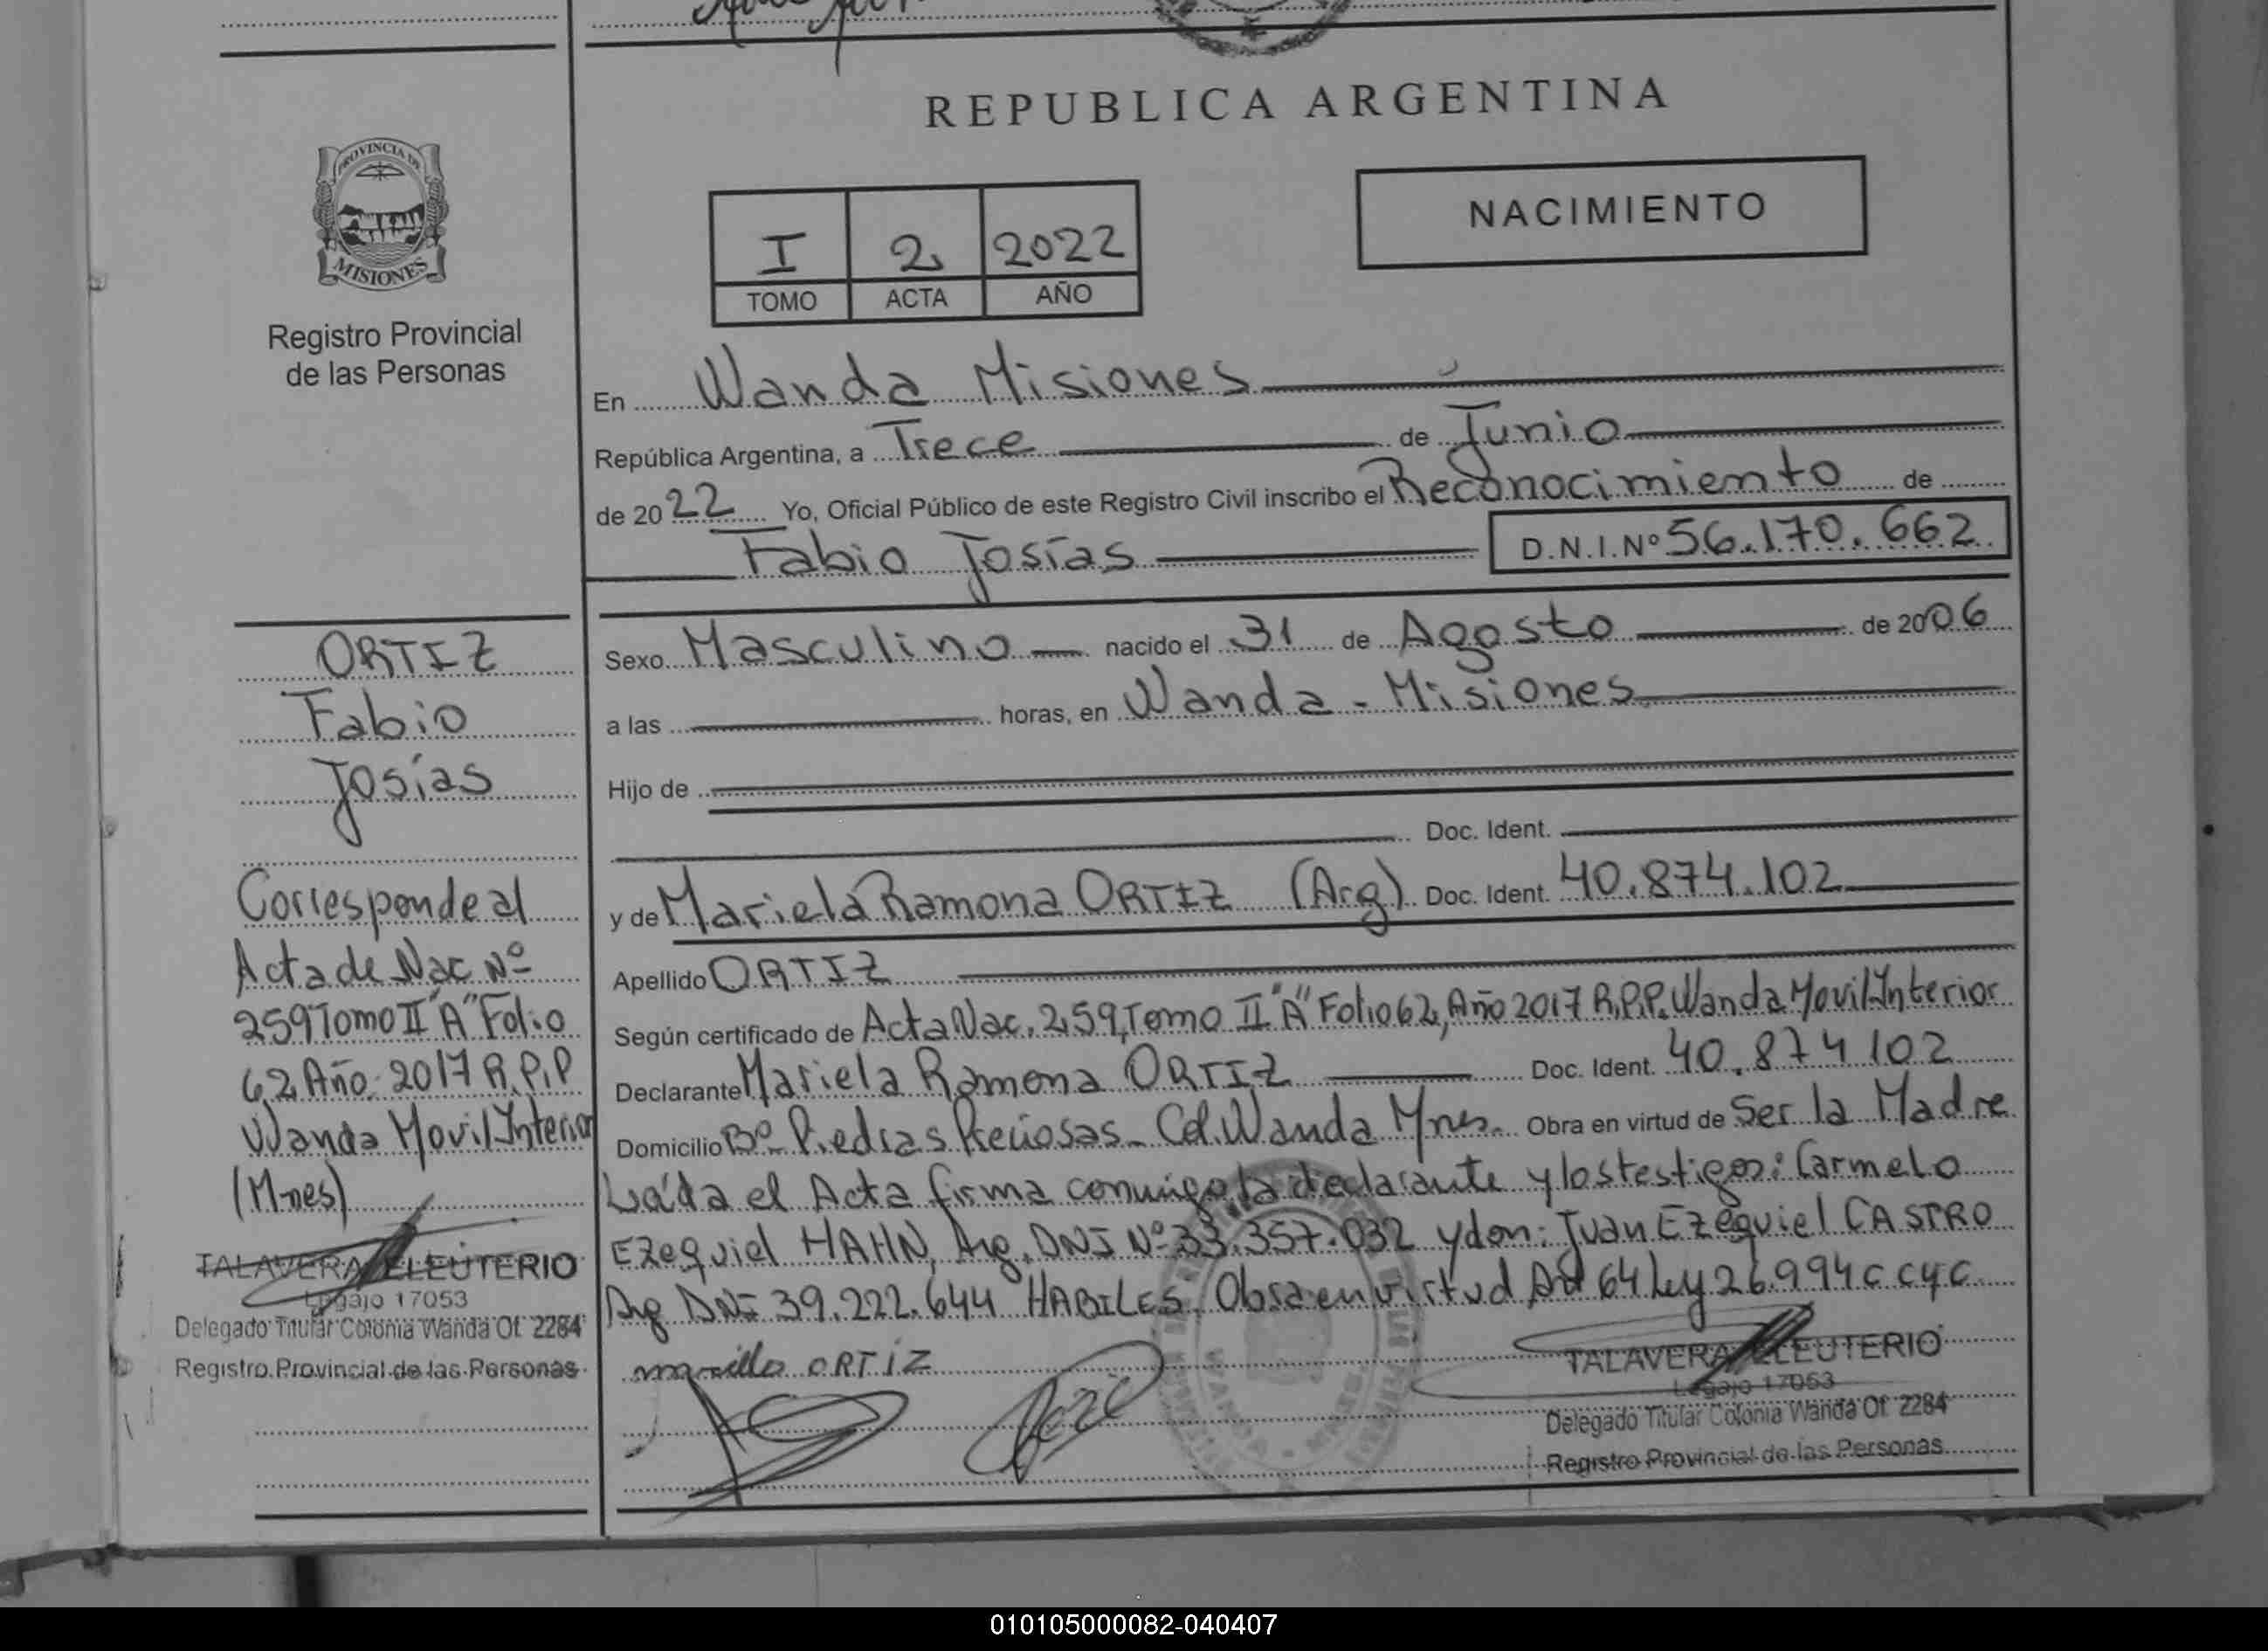 REPUBLICA ARGENTINA
PROVINCIA DE
MISIONES
Registro Provincial
de las Personas
NACIMIENTO
I 2 2022
TOMO ACTA AÑO
En Wanda Misiones
República Argentina, a Trece de Junio
de 2022 Yo, Oficial Público de este Registro Civil inscribo el Reconocimiento de
Fabio Josías D.N.I.Nº 56.170.662
Sexo Masculino nacido el 31 de Agosto de 2006
a las horas, en Wanda - Misiones
Hijo de
Doc. Ident.
y de Mariela Ramona ORTIZ (Arg) Doc. Ident. 40.874.102
Apellido ORTIZ
Según certificado de Acta Nac. 259, Tomo II "A" Folio 62, Año 2017 R.P.P. Wanda Movil Interior
Declarante Mariela Ramona ORTIZ Doc. Ident. 40.874102
Domicilio Bº Piedras Preciosas - Col. Wanda Mnes. Obra en virtud de Ser la Madre
Leída el Acta firma conmigo la declarante y los testigos: Carmelo
Ezequiel HAHN, Arg. DNI Nº 33.357.032 y don: Juan Ezequiel CASTRO
Arg DNI 39.222.644 HABILES. Obra en virtud Art 64 Ley 26.994 c cyc
ORTIZ
TALAVERA ELEUTERIO
Legajo 17053
Delegado Titular Colonia Wanda Of. 2284
Registro Provincial de las Personas
ORTIZ
Fabio
Josías
Corresponde al
Acta de Nac Nº
259 Tomo II "A" Folio
62 Año 2017 R.P.P
Wanda Movil Interior
(Mnes)
TALAVERA ELEUTERIO
Legajo 17053
Delegado Titular Colonia Wanda Of. 2284
Registro Provincial de las Personas
010105000082-040407